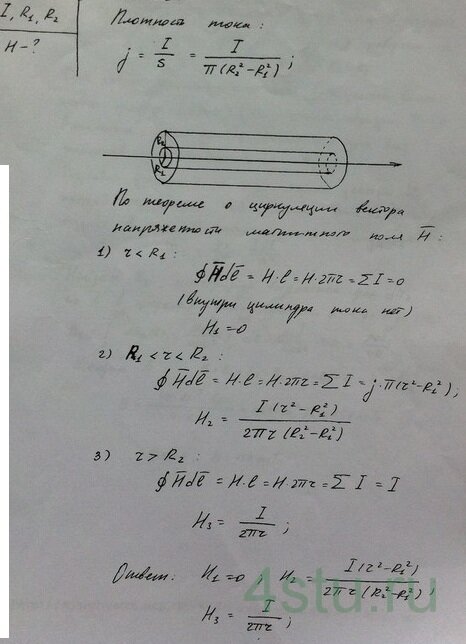 I, R₁, R₂
H-?
Плотность тока:
j = I/S = I/π(R₂²-R₁²);
R₂
R₁
По теореме о циркуляции вектора
напряженности магнитного поля H̅:
1) r < R₁:
∮H̅dl̅ = H·l = H·2πr = ΣI = 0
(внутри цилиндра тока нет)
H₁ = 0
2) R₁ < r < R₂:
∮H̅dl̅ = H·l = H·2πr = ΣI = j·π(r²-R₁²);
H₂ = I(r²-R₁²)/2πr(R₂²-R₁²)
3) r > R₂:
∮H̅dl̅ = H·l = H·2πr = ΣI = I
H₃ = I/2πr;
Ответ: H₁ = 0; H₂ = I(r²-R₁²)/2πr(R₂²-R₁²);
H₃ = I/2πr;
4stu.ru